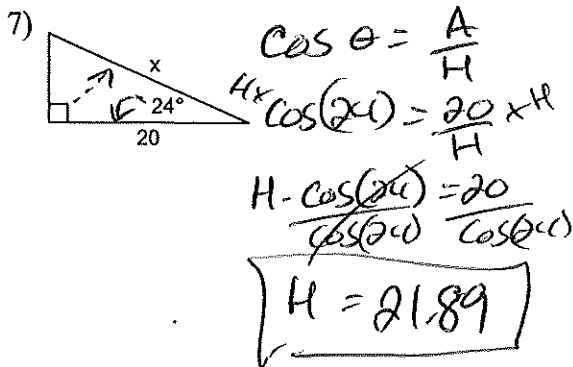 7)
x
24°
20
Cos θ = A/H
H× Cos(24) = 20/H × H
H · cos(24)/cos(24) = 20/cos(24)
H = 21.89